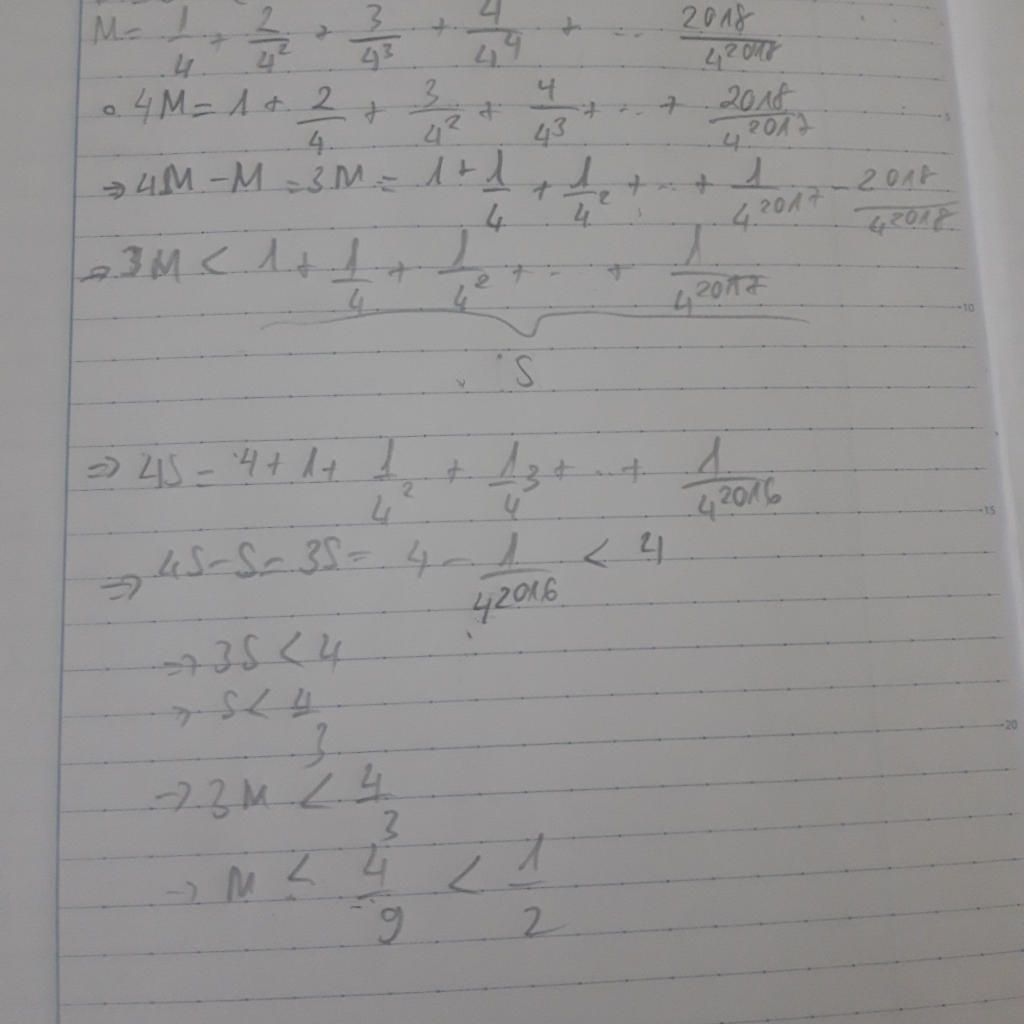 M = 1/4 + 2/4² + 3/4³ + 4/4⁴ + ... 2018/4²⁰¹⁸
• 4M = 1 + 2/4 + 3/4² + 4/4³ + ... + 2018/4²⁰¹⁷
⇒ 4M - M = 3M = 1 + 1/4 + 1/4² + ... + 1/4²⁰¹⁷ - 2018/4²⁰¹⁸
⇒ 3M < 1 + 1/4 + 1/4² + ... + 1/4²⁰¹⁷
10
S
⇒ 4S = 4 + 1 + 1/4² + 1/4³ + ... + 1/4²⁰¹⁶
15
⇒ 4S - S = 3S = 4 - 1/4²⁰¹⁶ < 4
⇒ 3S < 4
⇒ S < 4/3
20
→ 3M < 4/3
→ M < 4/9 < 1/2